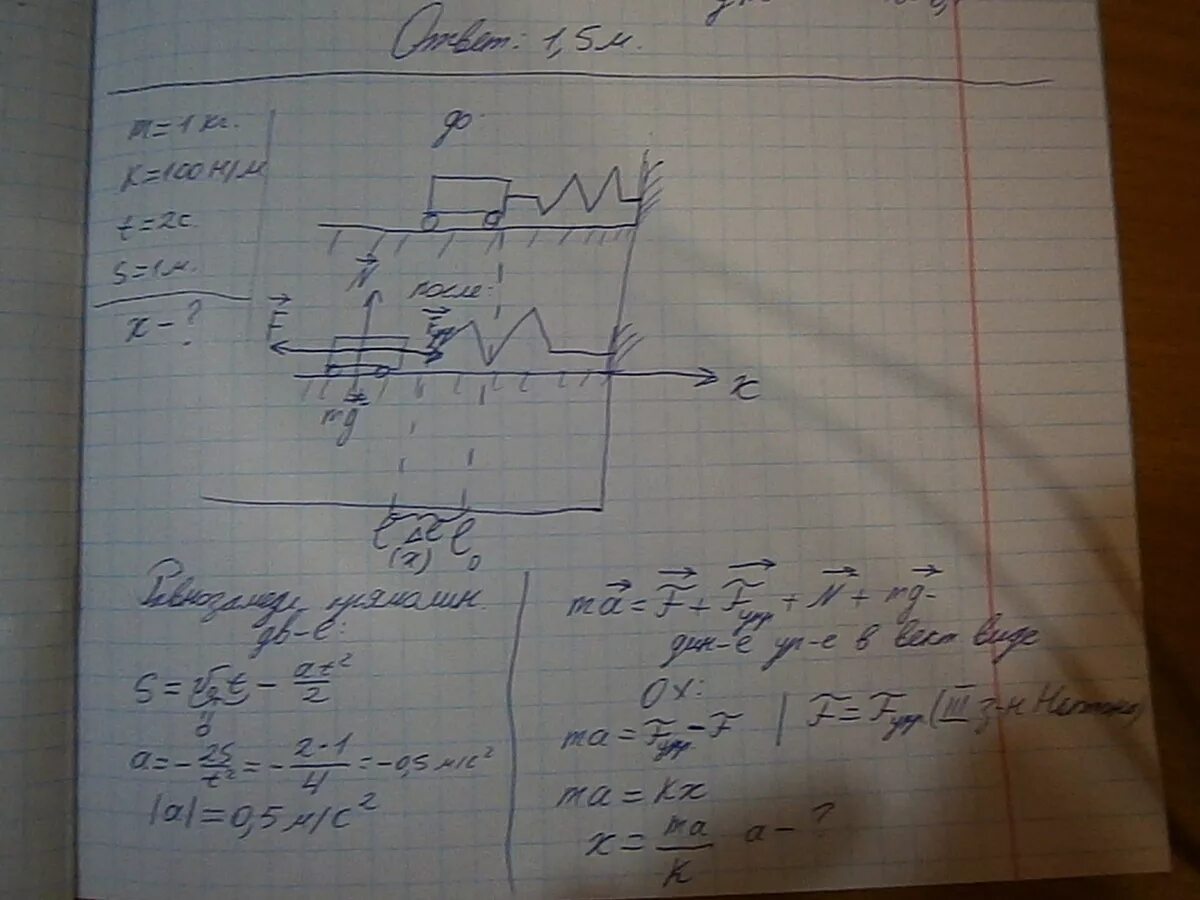 Ответ: 1,5 м.
m = 1 кг.
k = 100 Н/м
t = 2 с.
S = 1 м.
x - ?
до:
после:
N
F
Fупр
mg
x
l Δl l₀
(x)
Равнозамедл. прямолин.
дв-е:
S = v₀t - at²/2
0
a = -2S/t² = -2·1/4 = -0,5 м/с²
|a| = 0,5 м/с²
ma = F + Fупр + N + mg -
дин-е ур-е в вект виде
OX:
ma = Fупр - F | F = Fупр (III з-н Ньютона)
ma = kx
x = ma/k a - ?